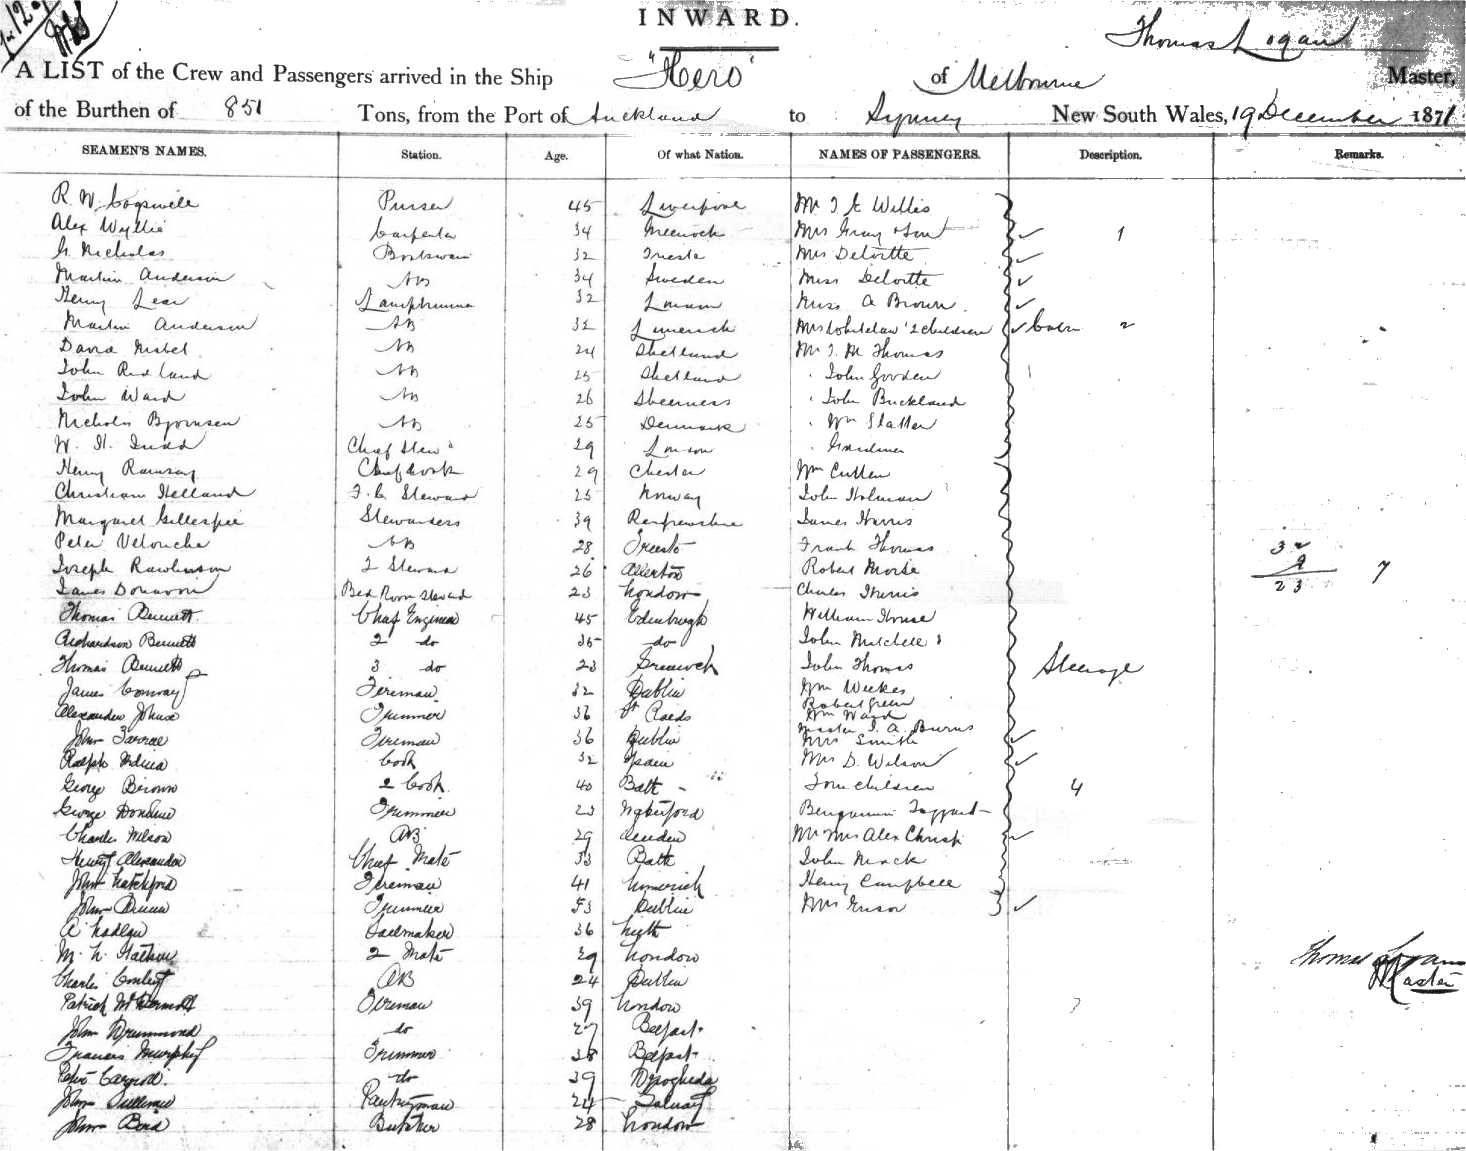 INWARD.
Thomas Logan
A LIST of the Crew and Passengers arrived in the Ship "Hero" of Melbourne Master,
of the Burthen of 851 Tons, from the Port of Auckland to Sydney New South Wales, 19 December 1871
SEAMEN'S NAMES. Station. Age. Of what Nation. NAMES OF PASSENGERS. Description. Remarks.
R. W. Cogswell Purser 45 Liverpool
Alex Wyllie Carpenter 34 Greenock Mrs Gray & Son 1
G. Nicholas Boatswain 32 Trieste Mrs Deloitte
Martin Anderson AB 34 Sweden Miss Deloitte
Henry Lear Lamptrimmer 32 London Miss A Brown
Martin Anderson AB 32 Limerick Mrs Whitelaw & 2 children Cabin 2
David Nisbet AB 24 Shetland Mr J. M Thomas
John Redland AB 25 Shetland John Gooden
John Ward AB 26 Sheerness John Buckland
Nicholas Bjornsen AB 25 Denmark Wm Slatter
W. H. Judd Chief Stew 29 London Gardiner
Henry Ramsay Chief Cook 29 Chester Wm Cullen
Christian Helland F. C. Steward 25 Norway John Holman
Margaret Gillespie Stewardess 39 Renfrewshire James Harris
Peter AB 28 Frank Thomas 32
Joseph Rawlinson 2 Steward 26 Allerton Robert Morse 9 7
James Donavon Bed Room Steward 23 London Charles Harris 23
Thomas Bennett Chief Engineer 45 Edinburgh William House
Richardson Bennett 2 do 35 do John Mitchell
Thomas Bennett 3 do 23 Greenock John Thomas Steerage
James Conway Fireman 32 Dublin Wm Weekes
Robert Green
Alexander Trimmer 36 Wm Ward
Master J. A. Burns
John Fireman 36 Dublin Mrs Smith
Ralph Cook 32 Spain Mrs D. Wilson
George Brown 2 Cook 40 Bath - Four children 4
George Trimmer 23 Waterford Benjamin Tappart
Charles Nelson AB 29 Mr Mrs Alex Christy
Henry Alexander Chief Mate 33 Bath John Mack
John Latchford Fireman 41 Limerick Henry Campbell
John Trimmer 53 Dublin Mrs
A Sailmaker 36 Leith
2 Mate 29 London Thomas Logan
Charles AB 24 Dublin Master
Patrick McDermott Fireman 39 London
John Drummond do 27 Belfast
Francis Murphy Trimmer 38 Belfast
Peter Carroll do 39 Drogheda
John Sullivan Pantryman 24 Galway
John Bond Butcher 28 London